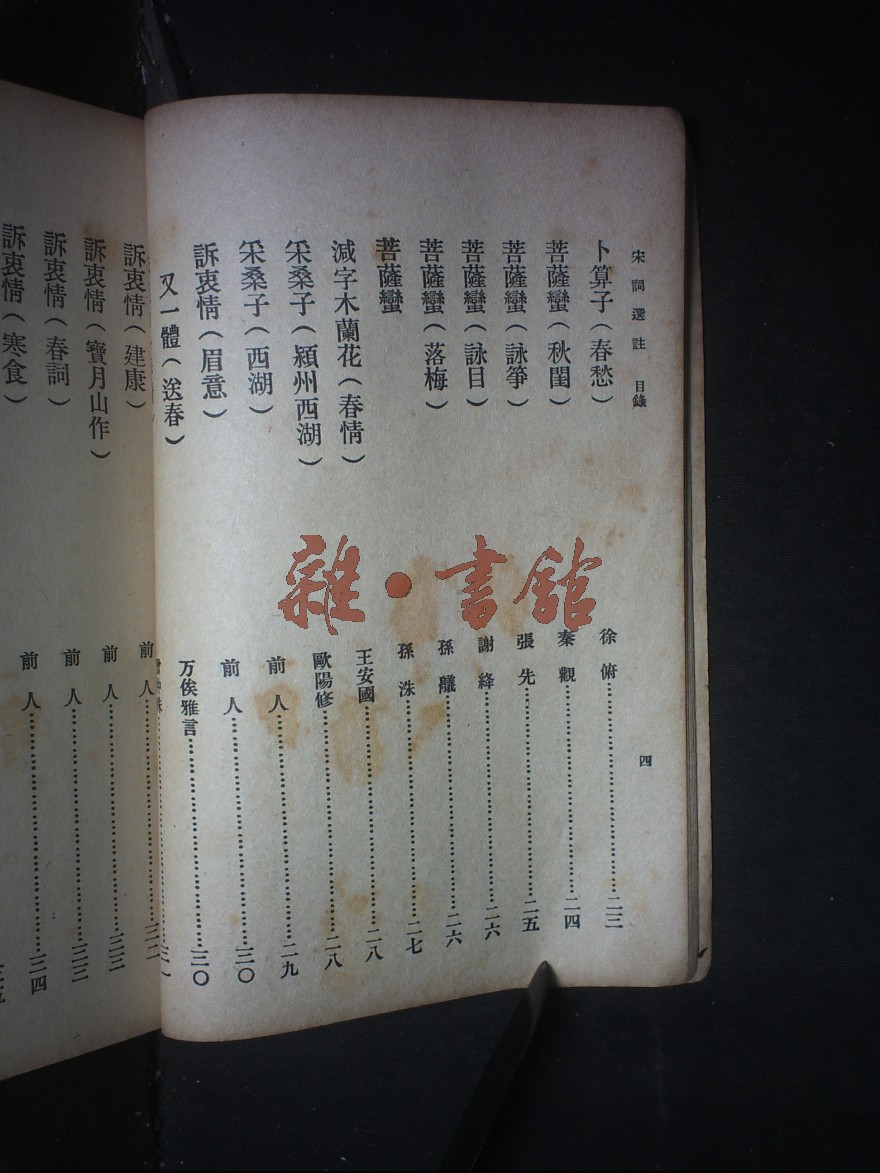 宋詞選註　目錄　四
卜算子（春愁）　徐俯……二三
菩薩蠻（秋閨）　秦觀……二四
菩薩蠻（詠箏）　張先……二五
菩薩蠻（詠目）　謝絳……二六
菩薩蠻（落梅）　孫艤……二六
菩薩蠻　孫洙……二七
減字木蘭花（春情）　王安國……二八
采桑子（潁州西湖）　歐陽修……二八
采桑子（西湖）　前人……二九
訴衷情（眉意）　前人……三〇
又一體（送春）　万俟雅言……三〇
訴衷情（建康）　前人……三二
訴衷情（寶月山作）　前人……三三
訴衷情（春詞）　前人……三三
訴衷情（寒食）　前人……三四
雜·書館